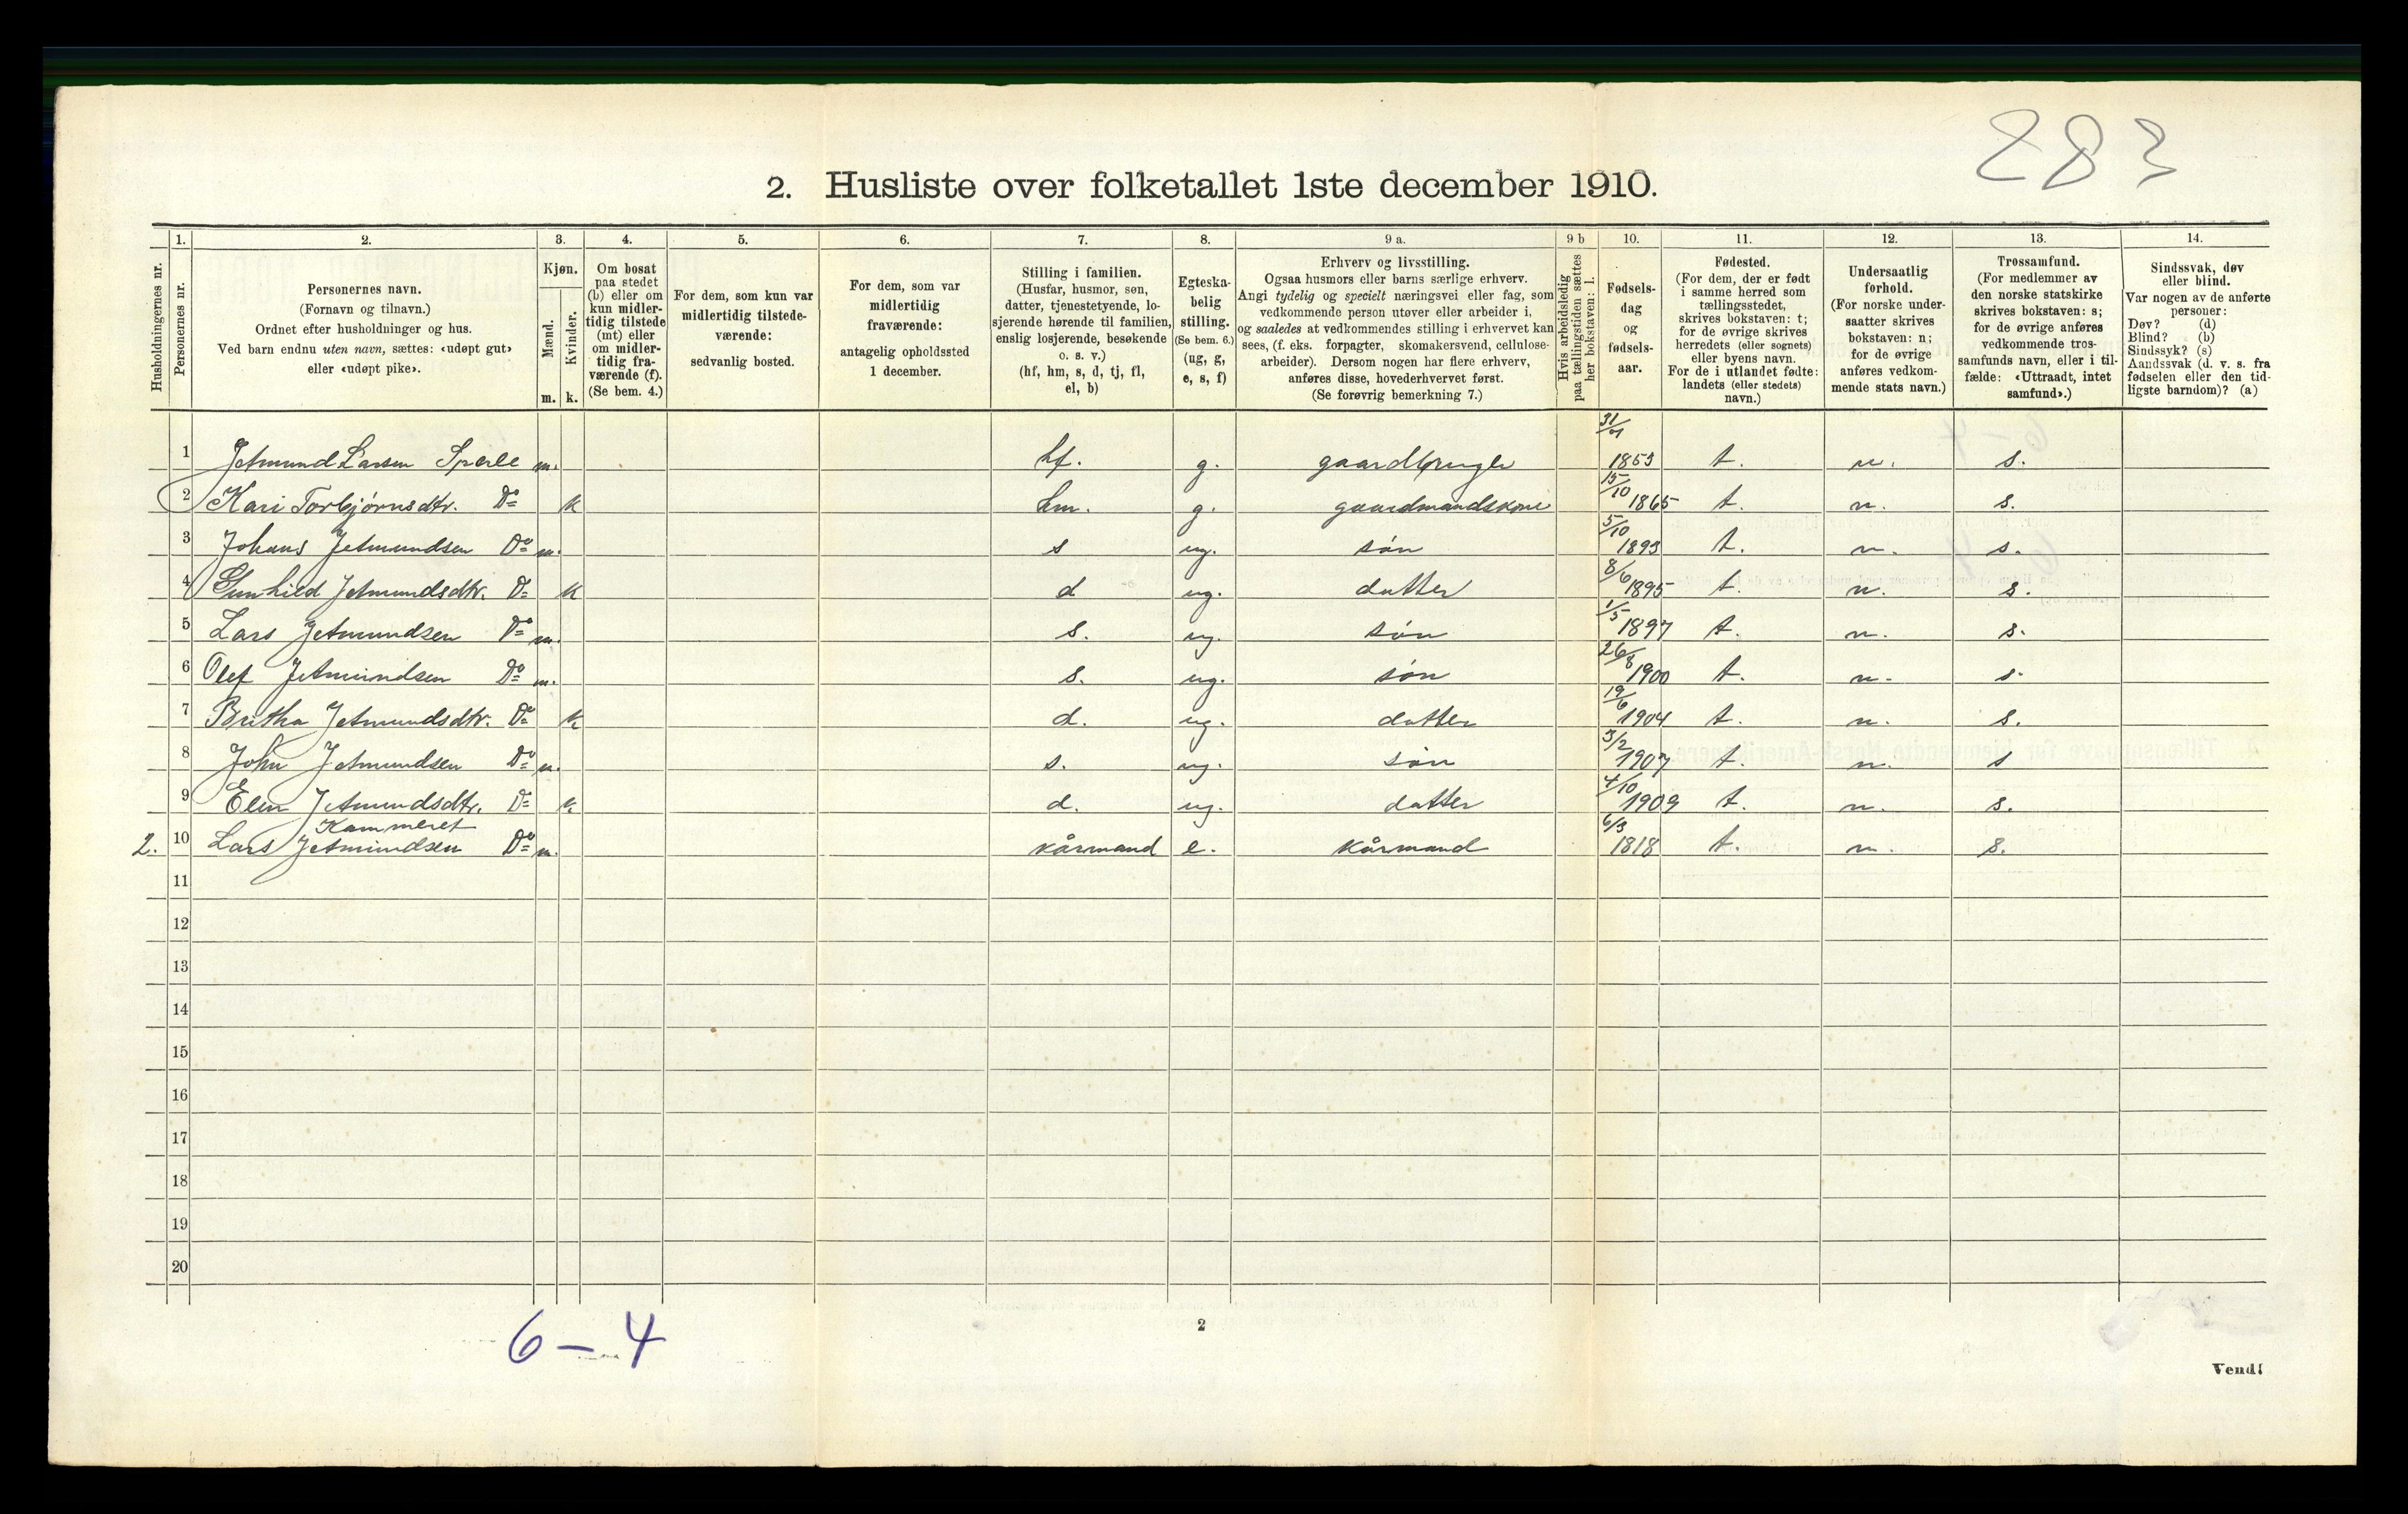 283
2. Husliste over folketallet 1ste december 1910.
Husholdningernes nr.
1.
Personernes nr.
2.
Personernes navn.
(Fornavn og tilnavn.)
Ordnet efter husholdninger og hus.
Ved barn endnu uten navn, sættes: «udøpt gut»
eller «udøpt pike».
3.
Kjøn.
Mænd.
Kvinder.
m. k.
4.
Om bosat
paa stedet
(b) eller om
kun midler-
tidig tilstede
(mt) eller
om midler-
tidig fra-
værende (f).
(Se bem. 4.)
5.
For dem, som kun var
midlertidig tilstede-
værende:
sedvanlig bosted.
6.
For dem, som var
midlertidig
fraværende:
antagelig opholdssted
1 december.
7.
Stilling i familien.
(Husfar, husmor, søn,
datter, tjenestetyende, lo-
sjerende hørende til familien,
enslig losjerende, besøkende
o. s. v.)
(hf, hm, s, d, tj, fl,
el, b)
8.
Egteska-
belig
stilling.
(Se bem. 6.)
(ug, g,
e, s, f)
9 a.
Erhverv og livsstilling.
Ogsaa husmors eller barns særlige erhverv.
Angi tydelig og specielt næringsvei eller fag, som
vedkommende person utøver eller arbeider i,
og saaledes at vedkommendes stilling i erhvervet kan
sees, (f. eks. forpagter, skomakersvend, cellulose-
arbeider). Dersom nogen har flere erhverv,
anføres disse, hovederhvervet først.
(Se forøvrig bemerkning 7.)
9 b
Hvis arbeidsledig
paa tællingstiden sættes
her bokstaven: l.
10.
Fødsels-
dag
og
fødsels-
aar.
11.
Fødested.
(For dem, der er født
i samme herred som
tællingsstedet,
skrives bokstaven: t;
for de øvrige skrives
herredets (eller sognets)
eller byens navn.
For de i utlandet fødte:
landets (eller stedets)
navn.)
12.
Undersaatlig
forhold.
(For norske under-
saatter skrives
bokstaven: n;
for de øvrige
anføres vedkom-
mende stats navn.)
13.
Trossamfund.
(For medlemmer av
den norske statskirke
skrives bokstaven: s;
for de øvrige anføres
vedkommende tros-
samfunds navn, eller i til-
fælde: «Uttraadt, intet
samfund».)
14.
Sindssvak, døv
eller blind.
Var nogen av de anførte
personer:
Døv? (d)
Blind? (b)
Sindssyk? (s)
Aandssvak (d. v. s. fra
fødselen eller den tid-
ligste barndom)? (a)
1 Jetmund Larsen Sperle m. hf. g. gaardbruger 1853 t. n. s.
2 Kari Torbjørnsdtr. Do k hm. g. gaardmandskone 15/10 1865 t. n. s.
3 Johans Jetmundsen Do m. s ug. søn 5/10 1893 t. n. s.
4 Gunhild Jetmundsdtr. Do k d ug. datter 8/6 1895 t. n. s.
5 Lars Jetmundsen Do m. s. ug. søn 1/5 1897 t. n. s.
6 Olef Jetmundsen Do m. s. ug. søn 26/8 1900 t. n. s.
7 Britha Jetmundsdtr. Do k d. ug. datter 19/6 1904 t. n. s.
8 John Jetmundsen Do m. s. ug. søn 3/2 1907 t. n. s
9 Elen Jetmundsdtr. Do k d. ug. datter 4/10 1909 t. n. s.
Kammeret
2. 10 Lars Jetmundsen Do m. kårmand e. kårmand 6/3 1818 t. n. s.
11
12
13
14
15
16
17
18
19
20
6 – 4
2
Vend!